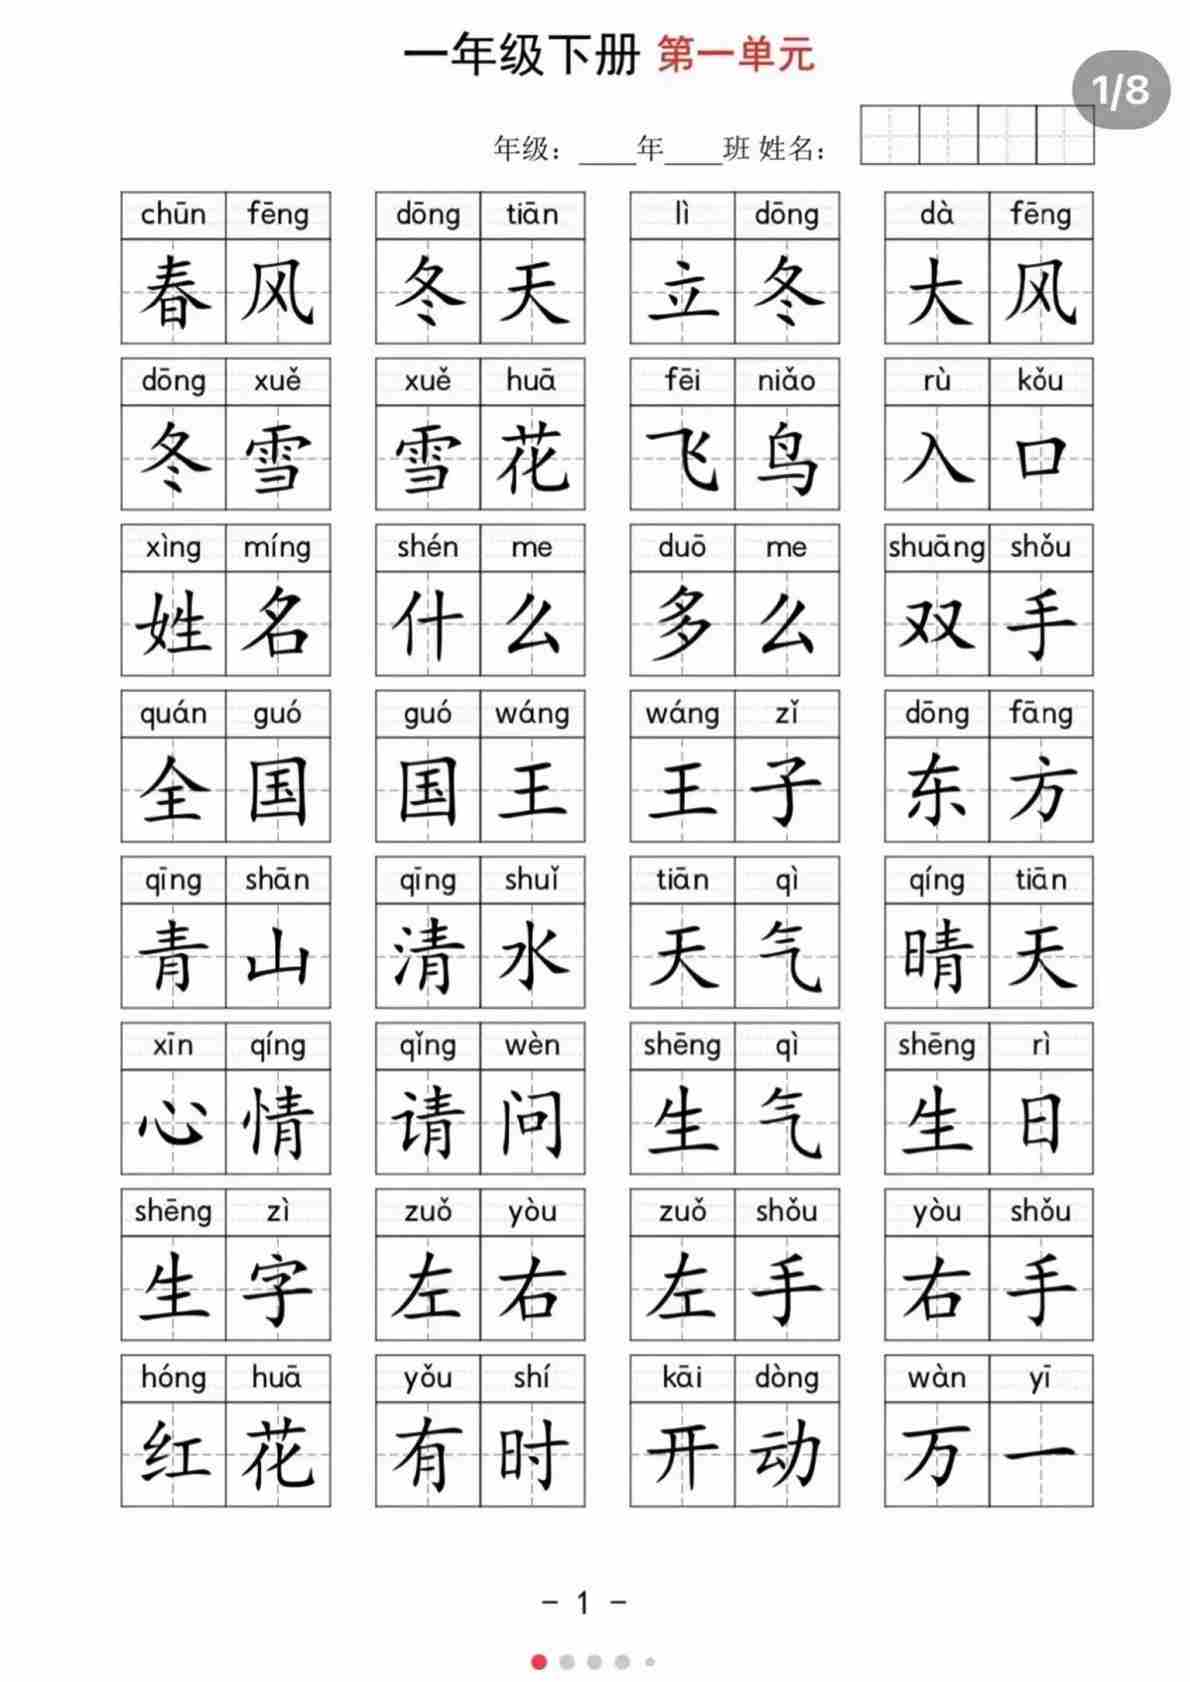 一年级下册 第一单元
1/8
年级：____年____班 姓名：
chūn fēng dōng tiān lì dōng dà fēng
春风 冬天 立冬 大风
dōng xuě xuě huā fēi niǎo rù kǒu
冬雪 雪花 飞鸟 入口
xìng míng shén me duō me shuāng shǒu
姓名 什么 多么 双手
quán guó guó wáng wáng zǐ dōng fāng
全国 国王 王子 东方
qīng shān qīng shuǐ tiān qì qíng tiān
青山 清水 天气 晴天
xīn qíng qǐng wèn shēng qì shēng rì
心情 请问 生气 生日
shēng zì zuǒ yòu zuǒ shǒu yòu shǒu
生字 左右 左手 右手
hóng huā yǒu shí kāi dòng wàn yī
红花 有时 开动 万一
- 1 -